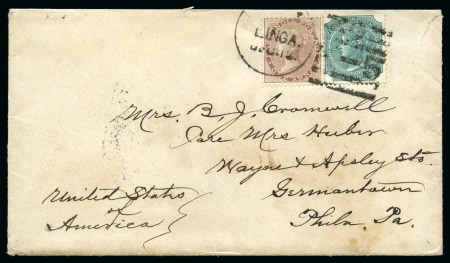 LINGA.
Mrs. B. J. Cromwell
Care Mrs Huber
Wayne & Apsley Sts.
Germantown
Phila. Pa.
United States
of
America